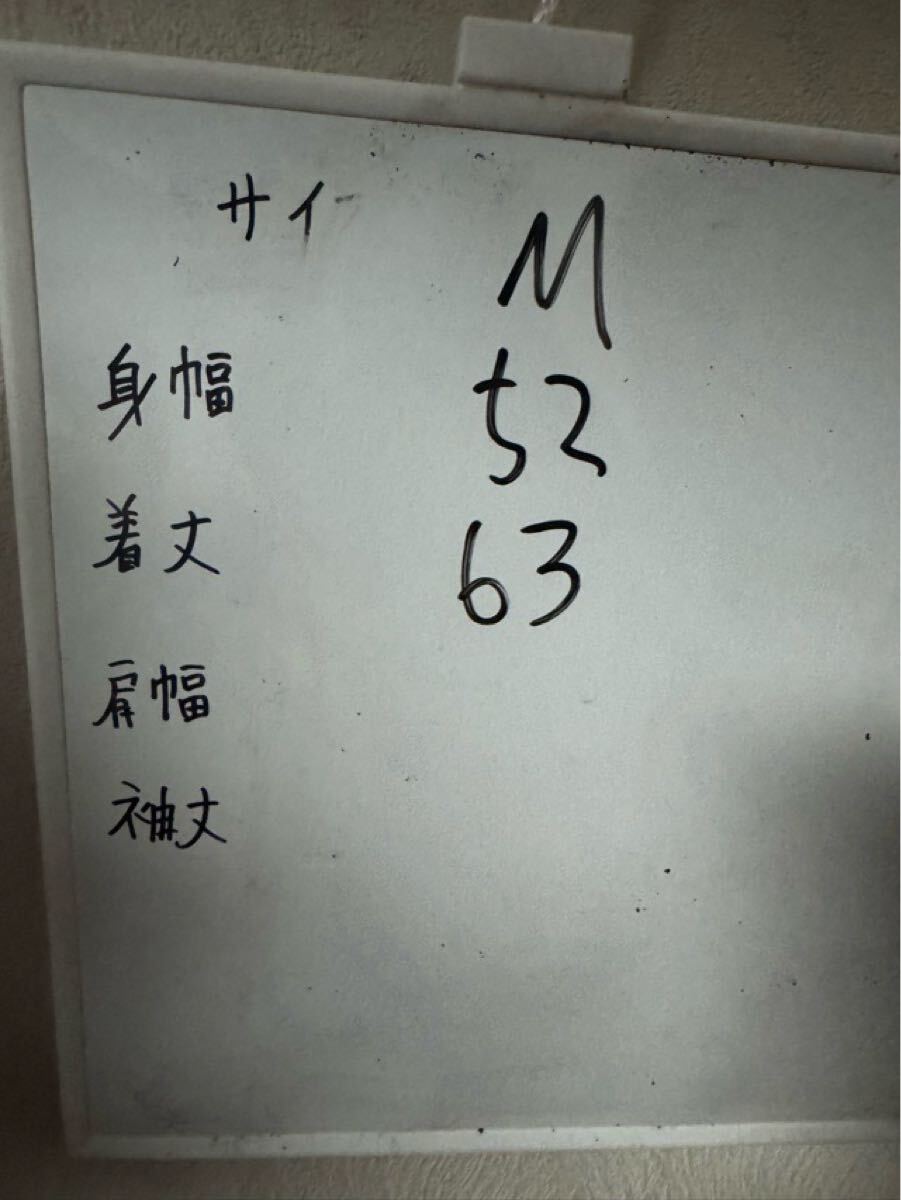 サイ M
身幅 52
着丈 63
肩幅
袖丈